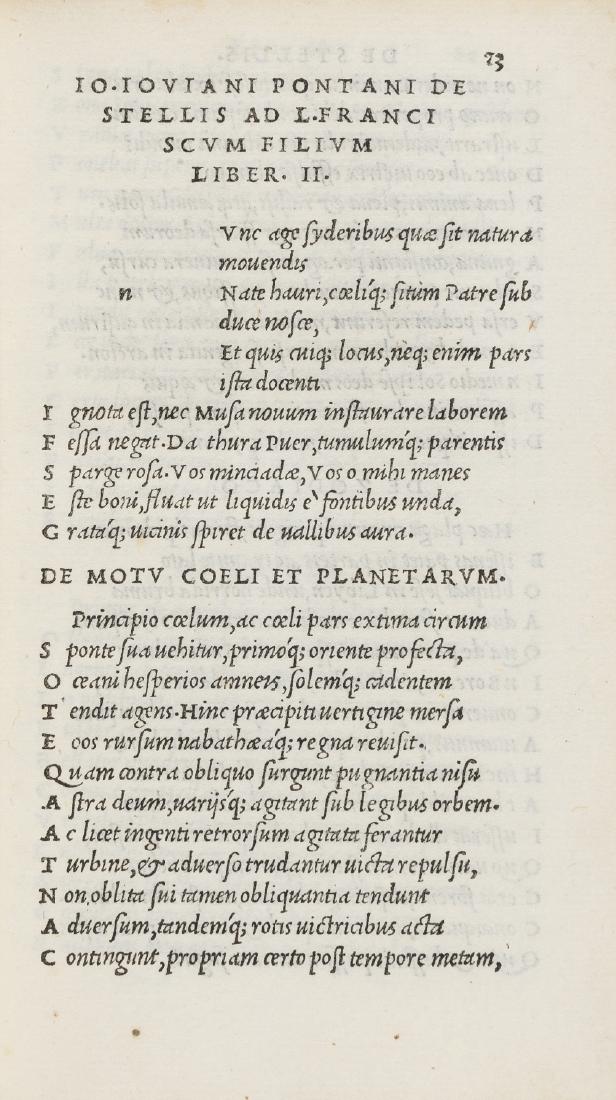 73
IO.IOVIANI PONTANI DE
STELLIS AD L.FRANCI
SCVM FILIVM
LIBER. II.
Vnc age syderibus quæ sit natura
mouendis
n Nate hauri, cœliq́; situm Patre sub
duce nosce,
Et quis cuiq; locus, neq; enim pars
ista docenti
I gnota est, nec Musa nouum instaurare laborem
F essa negat. Da thura Puer, tumulumq́; parentis
S parge rosa. Vos minciadæ, Vos o mihi manes
E ste boni, fluat ut liquidis è fontibus unda,
G rataq́; uicinis spiret de uallibus aura.
DE MOTV COELI ET PLANETARVM.
Principio cœlum, ac cœli pars extima circum
S ponte sua uehitur, primoq́; oriente profecta,
O ceani hesperios amneis, solemq́; cadentem
T endit agens. Hinc præcipiti uertigine mersa
E oos rursum nabathæaq́; regna reuisit.
Quam contra obliquo surgunt pugnantia nisu
A stra deum, uarijsq́; agitant sub legibus orbem.
A c licet ingenti retrorsum agitata ferantur
T urbine, & aduerso trudantur uicta repulsu,
N on, oblita sui tamen obliquantia tendunt
A duersum, tandemq́; rotis uictricibus acta
C ontingunt, propriam certo post tempore metam,